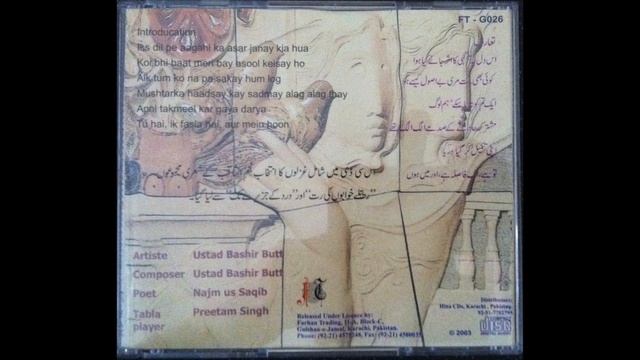 FT - G026
Introducation
Iss dil pe aagahi ka asar janay kia hua
Koi bhi baat meri bay asool kaisay ho
Aik tum ko na pa sakay hum log
Mushtarka haadsay kay sadmay alag alag thay
Apni takmeel kar gaya darya
Tu hai, ik fasla hai, aur mein hoon
تعارف
اس دل پہ آگہی کا اثر جانے کیا ہوا
کوئی بھی بات مری بے اصول کیسے ہو
ایک تم کو نہ پا سکے ہم لوگ
مشترکہ حادثے کے صدمے الگ الگ تھے
اپنی تکمیل کر گیا دریا
تو ہے، اک فاصلہ ہے، اور میں ہوں
اس سی ڈی میں شامل غزلوں کا انتخاب نجم الثاقب کے شعری مجموعوں
"رتجگے خوابوں کی رت" اور "درد کے جزیرے تک" سے کیا گیا۔
Artiste Ustad Bashir Butt
Composer Ustad Bashir Butt
Poet Najm us Saqib
Tabla player Preetam Singh
Released Under Licence by:
Farhan Trading, 11-A, Block-C,
Gulshan-e-Jamal, Karachi, Pakistan.
Phone: (92-21) 4575348, Fax: (92-21)
Distributors:
Hina CDs, Karachi, Pakistan.
© 2003
COMPACT disc